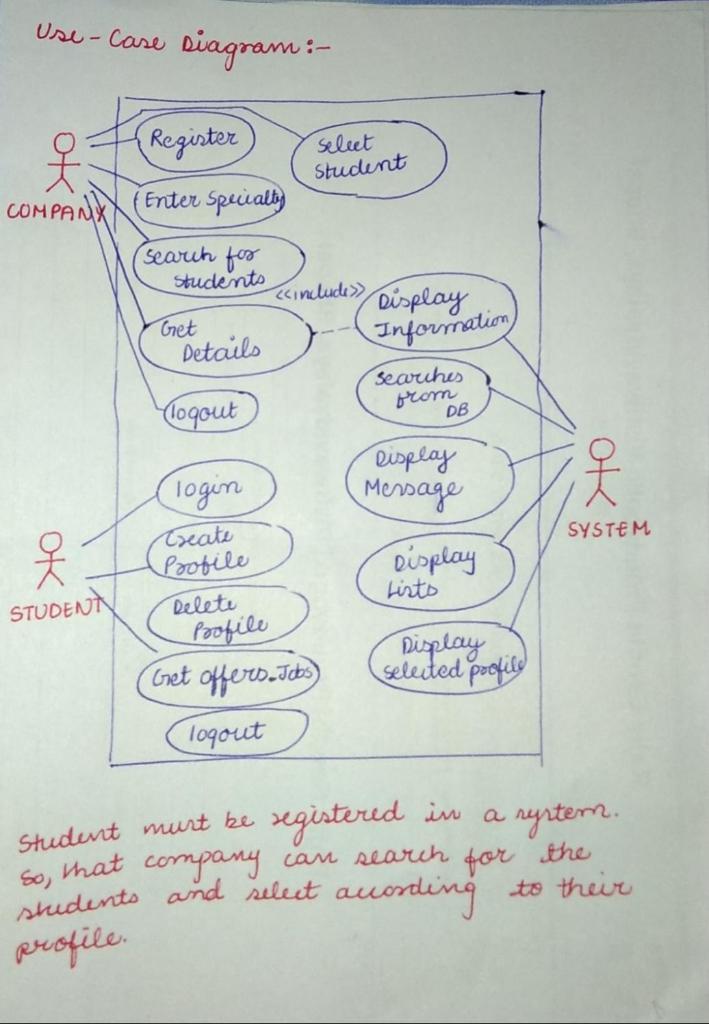 Use-Case Diagram:-
Register
Select
Student
COMPANY
Enter Specialty
Search for
Students
<<include>>
Display
Information
Get
Details
Searches
from
DB
logout
Display
Message
login
SYSTEM
Create
Profile
STUDENT
Display
Lists
Delete
Profile
Display
selected profile
Get offers-Jobs
logout
Student must be registered in a system.
So, that company can search for the
students and select according to their
profile.